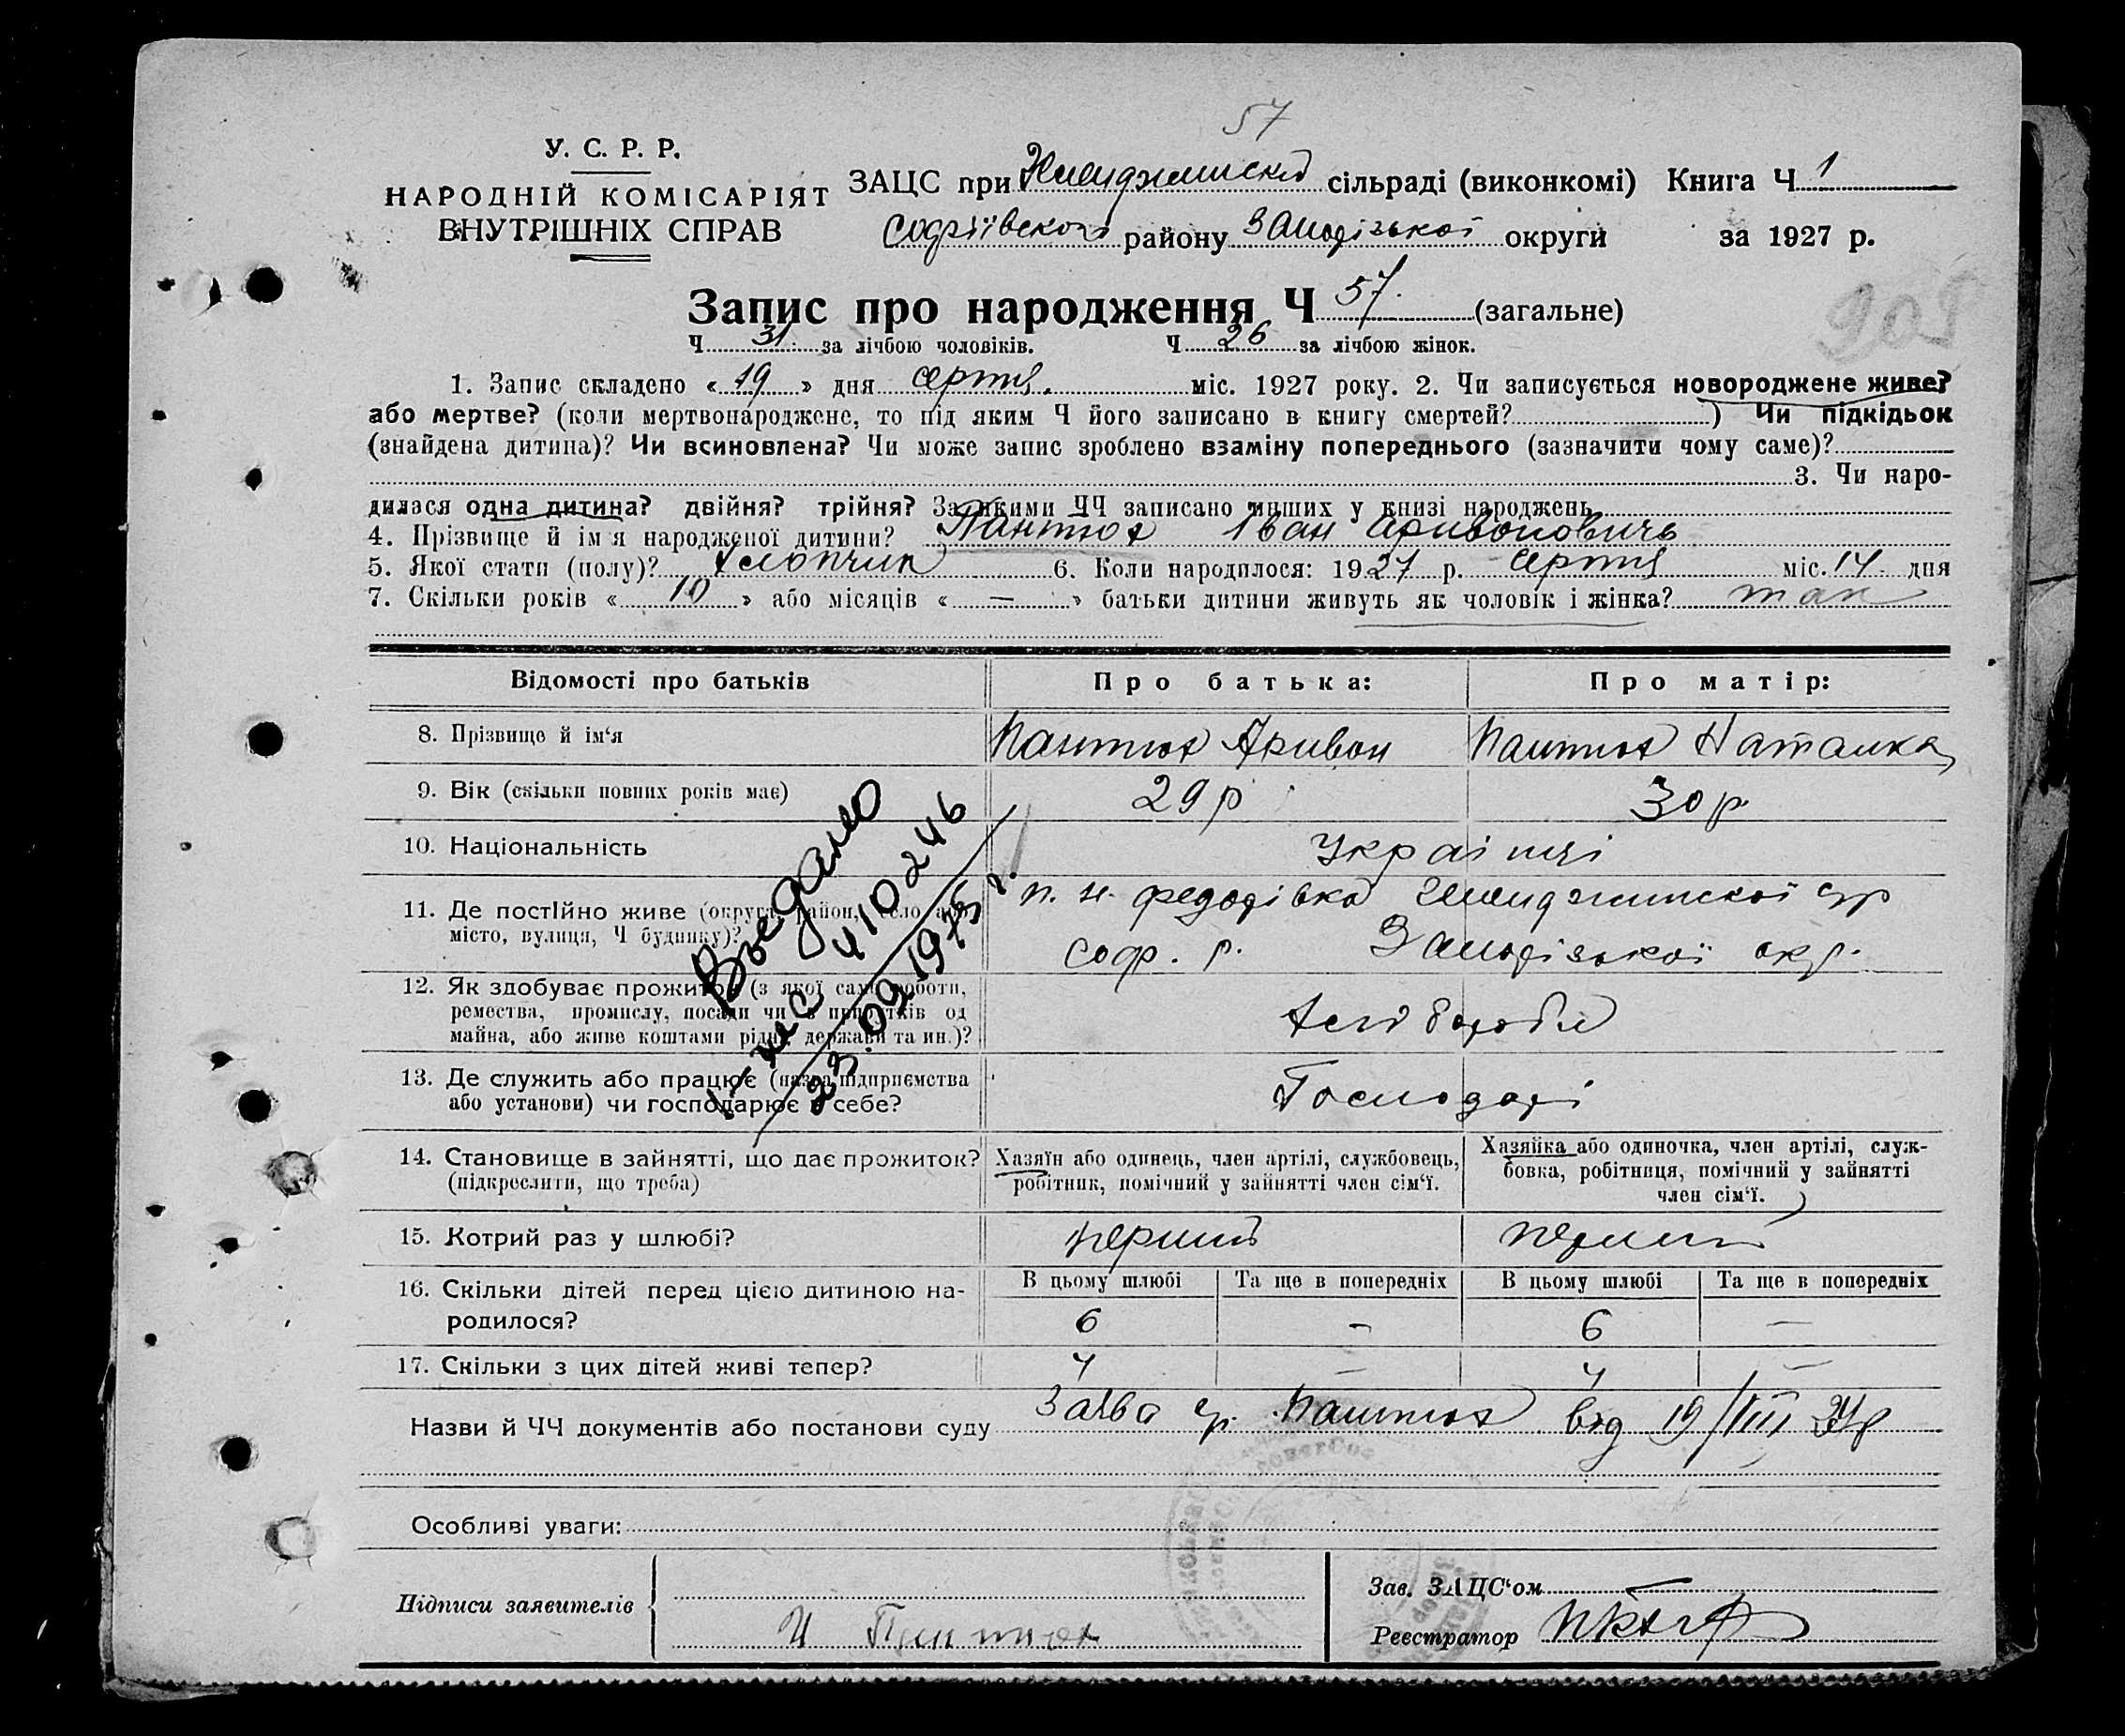 57
У. С. Р. Р.
НАРОДНІЙ КОМІСАРІЯТ
ВНУТРІШНІХ СПРАВ
ЗАЦС при сільраді (виконкомі) Книга Ч 1
Софіївского району Запорізької округи за 1927 р.
Запис про народження Ч 57. (загальне)
Ч 31 за лічбою чоловіків. Ч 26 за лічбою жінок.
905
1. Запис складено « 19 » дня серпня міс. 1927 року. 2. Чи записується новороджене живе?
або мертве? (коли мертвонароджене, то під яким Ч його записано в книгу смертей? ) Чи підкідьок
(знайдена дитина)? Чи всиновлена? Чи може запис зроблено взаміну попереднього (зазначити чому саме)?
3. Чи наро-
дилася одна дитина? двійня? трійня? За якими ЧЧ записано инших у книзі народжень
4. Прізвище й ім я народженої дитини? Пантюх Іван Аривонович
5. Якої стати (полу)? Хлопчик 6. Коли народилося: 1927 р. серпня міс. 14 дня
7. Скільки років « 10 » або місяців « — » батьки дитини живуть як чоловік і жінка? так
Відомості про батьків Про батька: Про матір:
8. Прізвище й ім'я Пантюх Аривон Пантюх Наталка
9. Вік (скільки повних років має) 29 р 30 р
10. Національність Українці
11. Де постійно живе (округа, район, село або
місто, вулиця, Ч будинку)?
п. н. Федорівка ср
Соф. р. Запорізької окр.
12. Як здобуває прожиток (з якої саме роботи,
ремества, промислу, посади чи з прибутків од
майна, або живе коштами рідні, держави та ин.)?
Хлібороби
13. Де служить або працює (назва підприємства
або установи) чи господарює в себе?
Господарі
Выдано
1-ЖС 410246
23.09.1975 г.
14. Становище в зайнятті, що дає прожиток?
(підкреслити, що треба)
Хазяїн або одинець, член артілі, службовець,
робітник, помічний у зайнятті член сім'ї.
Хазяйка або одиночка, член артілі, служ-
бовка, робітниця, помічний у зайнятті
член сім'ї.
15. Котрий раз у шлюбі? перший перший
16. Скільки дітей перед цією дитиною на-
родилося?
В цьому шлюбі Та ще в попередніх В цьому шлюбі Та ще в попередніх
6 - 6 —
17. Скільки з цих дітей живі тепер? 4 — 4 —
Назви й ЧЧ документів або постанови суду Заява гр. Пантюх від 19/VIII 27р
Особливі уваги:
Підписи заявителів
И Пантюх
Зав. ЗАЦС'ом
Реєстратор